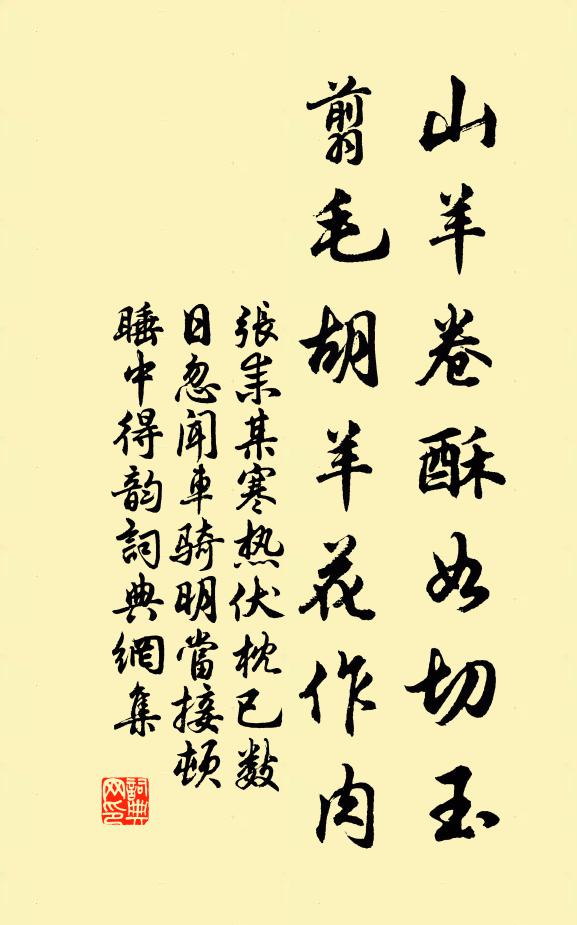 山羊卷酥如切玉
翦毛胡羊花作肉
張耒某寒热伏枕已数
日忽闻車騎明當接頓
睡中得韵詞典網集
詞典
网印